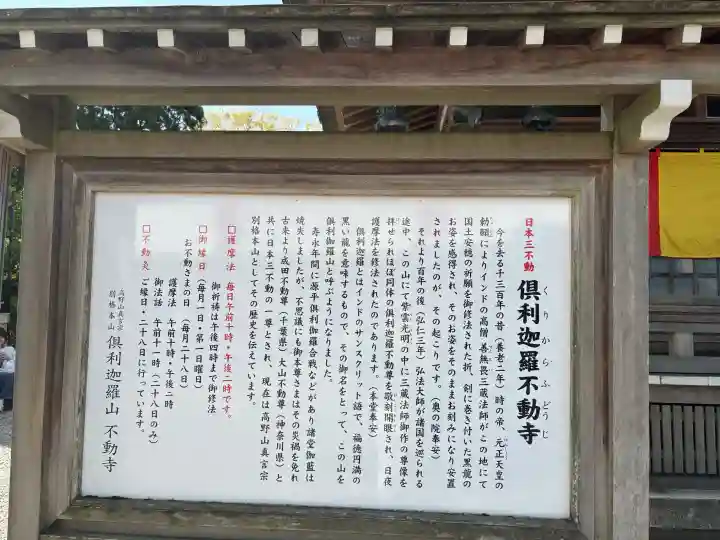 日本三不動
倶利迦羅不動寺
くりからふどうじ
今を去る千三百年の昔(養老二年)時の帝、元正天皇の
勅願によりインドの高僧 善無畏三蔵法師がこの地にて
国土安穏の祈願を御修法された折、剣に巻き付いた黒龍の
お姿を感得され、そのお姿をそのままお刻みになり安置
されましたのが、その起こりです。(奥の院奉安)
それより百年の後(弘仁三年)弘法大師が諸国を巡られる
途中、この山にて紫雲光明の中に三蔵法師御作の尊像を
拝せられほぼ同体の倶利迦羅不動尊を敬刻開眼され、日夜
護摩法を修法されたのであります。(本堂奉安)
倶利迦羅とはインドのサンスクリット語で、福徳円満の
黒い龍を意味するもので、その御名をとって、この山を
倶利伽羅山と呼ぶようになりました。
寿永年間に源平倶利伽羅合戦などがあり諸堂伽藍は
焼失しましたが、不思議にも御本尊さまはその災禍を免れ
古来より成田不動尊(千葉県)大山不動尊(神奈川県)と
共に日本三不動の一尊とされ、現在は高野山真言宗
別格本山としてその歴史を伝えています。
□護摩法 毎日午前十時・午後二時です。
御祈祷は午後四時まで御修法
□御縁日(毎月一日・第一日曜日)
お不動さまの日(毎月二十八日)
護摩法 午前十時・午後二時
御法話 午前十一時(二十八日のみ)
□不動灸 ご縁日・二十八日に行っています。
高野山真言宗
別格本山 倶利迦羅山 不動寺